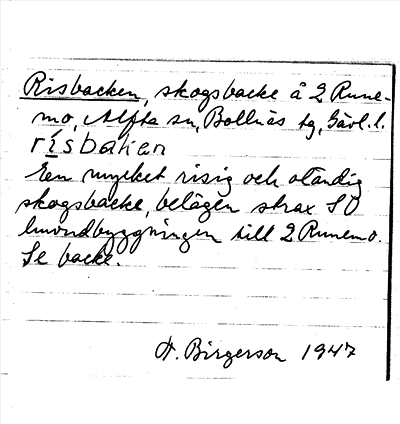 Risbacken, skogsbacke å 2 Rune-
mo, Alfta sn, Bollnäs tg, Gävl. l.
rísbaken
En mycket risig och oländig
skogsbacke, belägen strax SO
huvudbyggningen till 2 Runemo.
Se backe.
A. Birgerson 1947